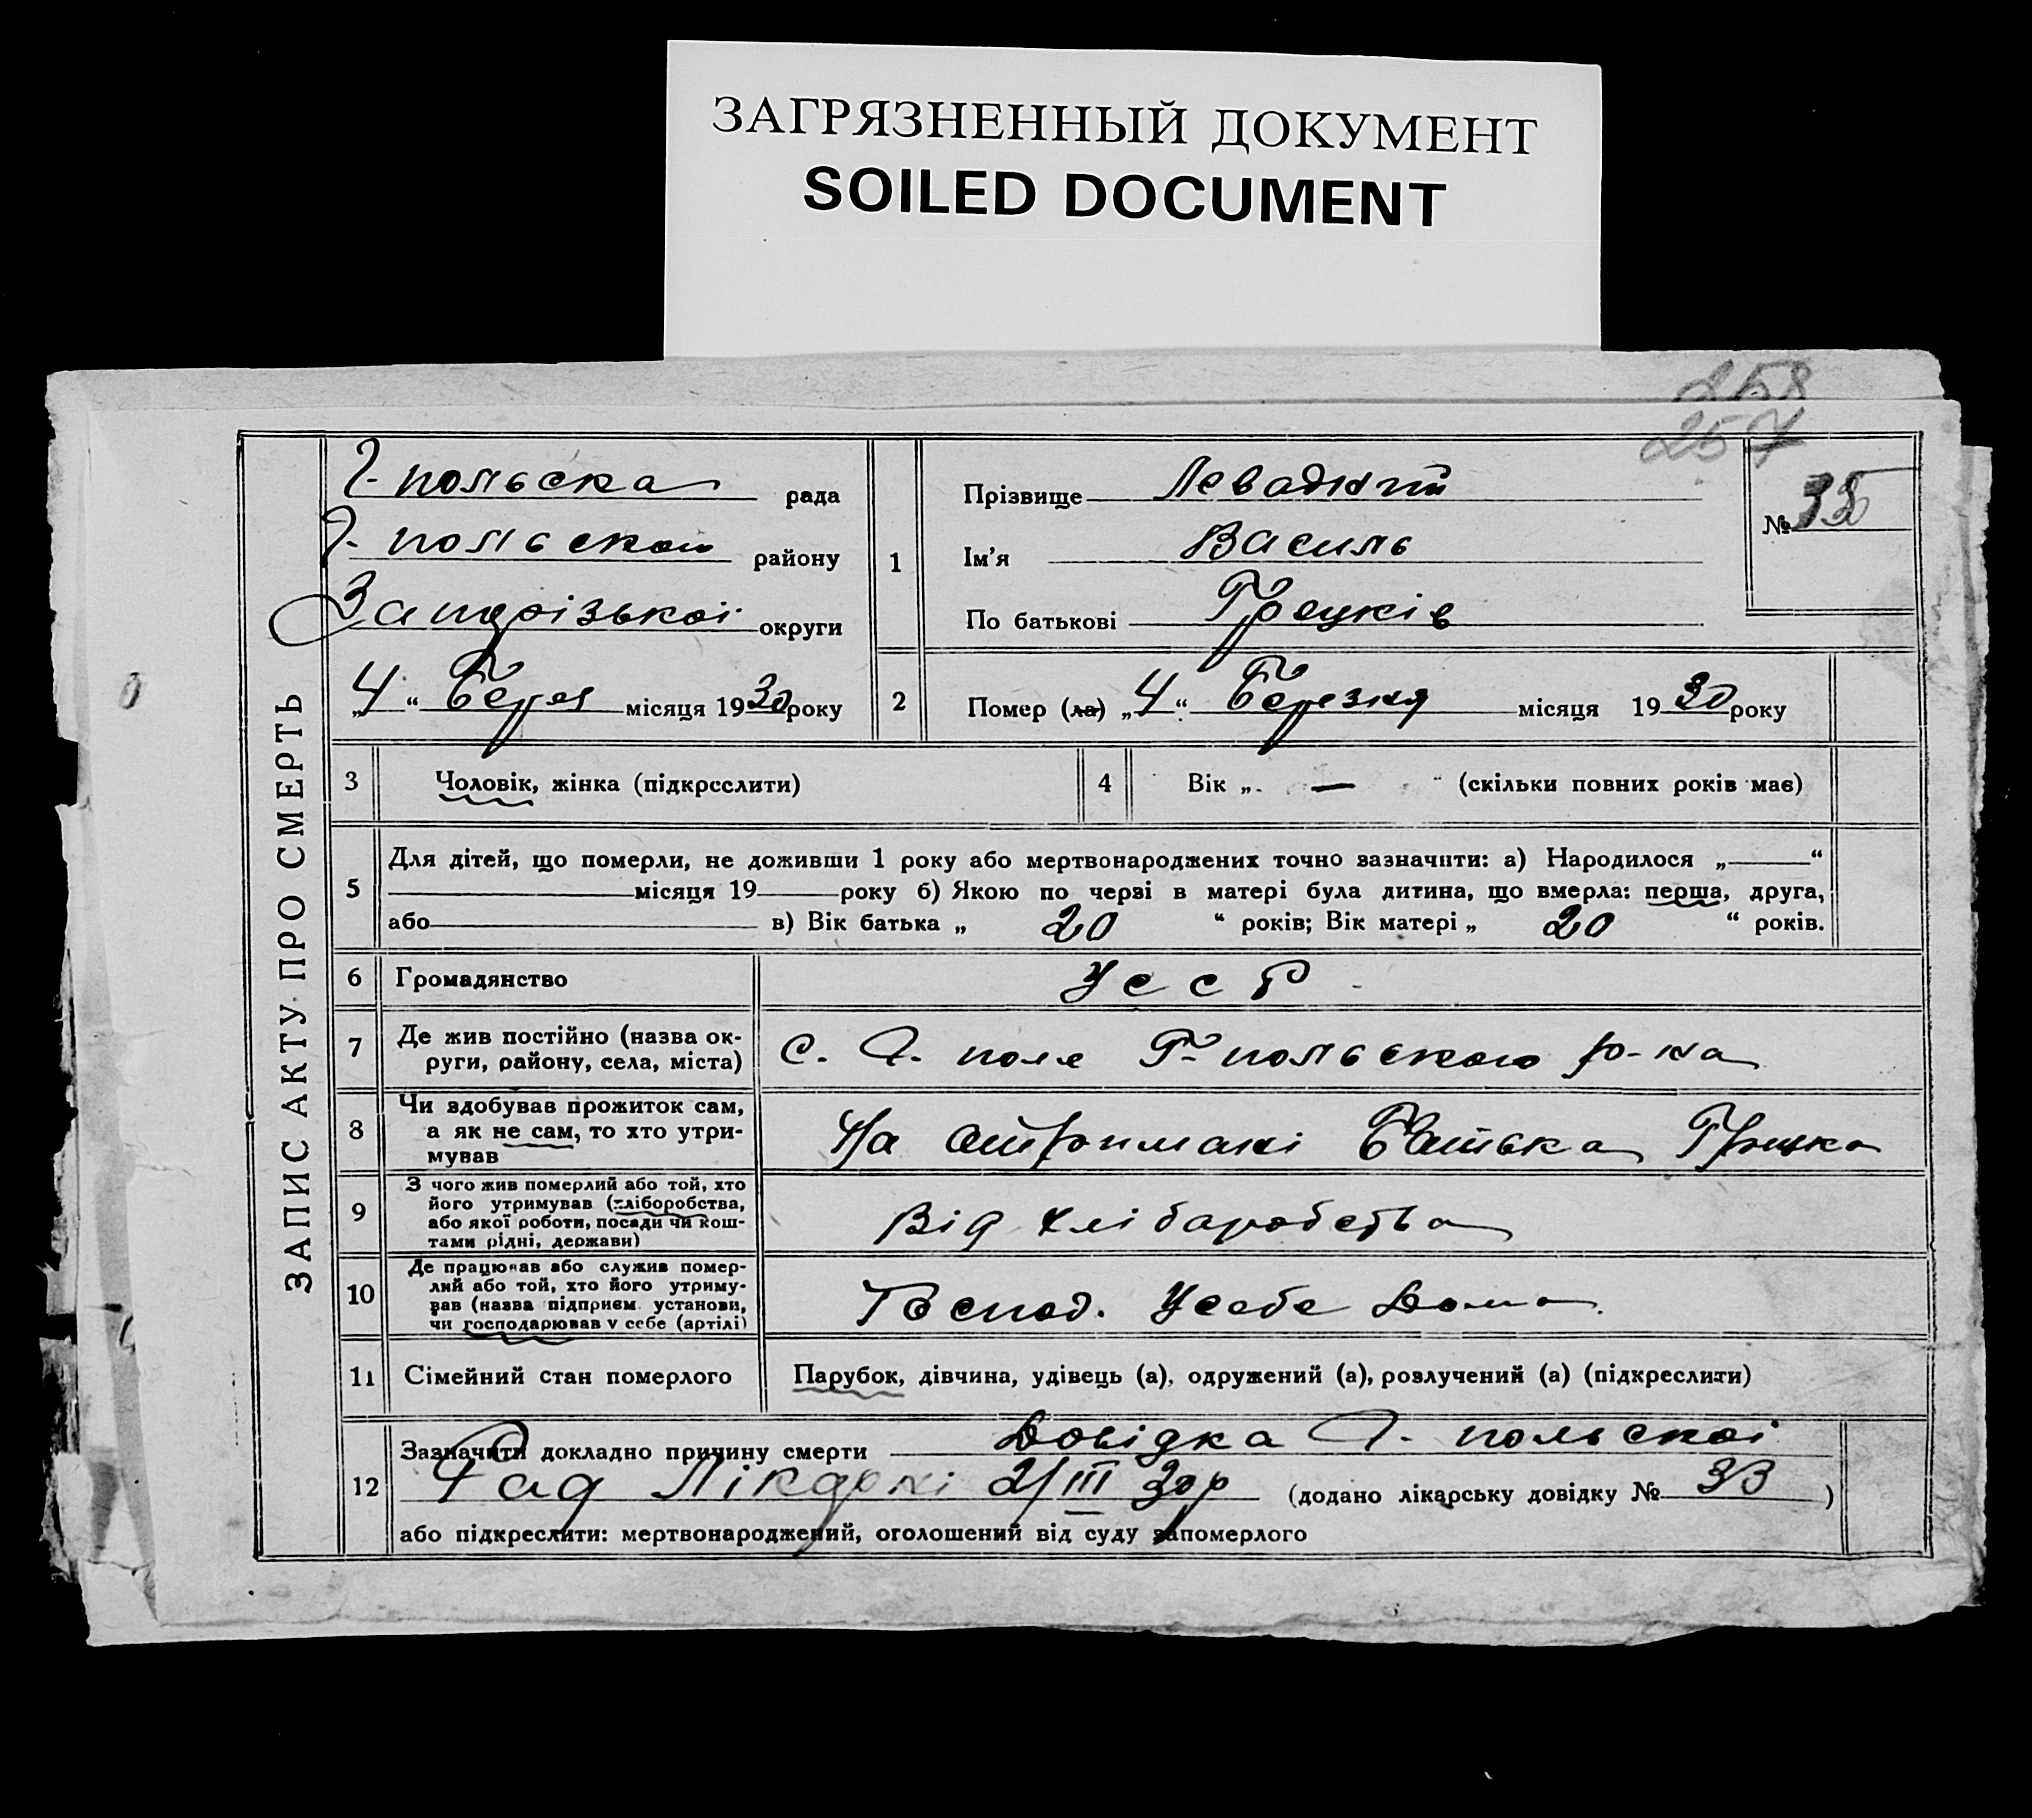 ЗАГРЯЗНЕННЫЙ ДОКУМЕНТ
SOILED DOCUMENT
258
257
ЗАПИС АКТУ ПРО СМЕРТЬ
Г-польска рада
Г-польского району
Запорізької округи
„4“ Берез місяця 1930 року
1
Прізвище Левадний
Ім’я Василь
По батькові Грецків
№ 35
2 Помер (ла) „4“ Березня місяця 1930 року
3 Чоловік, жінка (підкреслити)
4 Вік „ — “ (скільки повних років має)
5 Для дітей, що померли, не доживши 1 року або мертвонароджених точно зазначити: а) Народилося „ “
місяця 19 року б) Якою по черзі в матері була дитина, що вмерла: перша, друга,
або в) Вік батька „ 20 “ років; Вік матері „ 20 “ років.
6 Громадянство УССР
7 Де жив постійно (назва ок-
руги, району, села, міста)
С. Г. поле Г-польского р-на
8 Чи здобував прожиток сам,
а як не сам, то хто утри-
мував
На отримані Батька Грицка
9 З чого жив померлий або той, хто
його утримував (хліборобства,
або якої роботи, посади чи кош-
тами рідні, держави)
Від хлібаробства
10 Де працював або служив помер-
лий або той, хто його утриму-
вав (назва підприєм. установи,
чи господарював у себе (артілі)
Господ. Усебе Дома.
11 Сімейний стан померлого
Парубок, дівчина, удівець (а), одружений (а), розлучений (а) (підкреслити)
12 Зазначити докладно причину смерти Довідка Г. польскоі
Рад Лікарні 2/III 30р (додано лікарську довідку № 33)
або підкреслити: мертвонароджений, оголошений від суду запомерлого